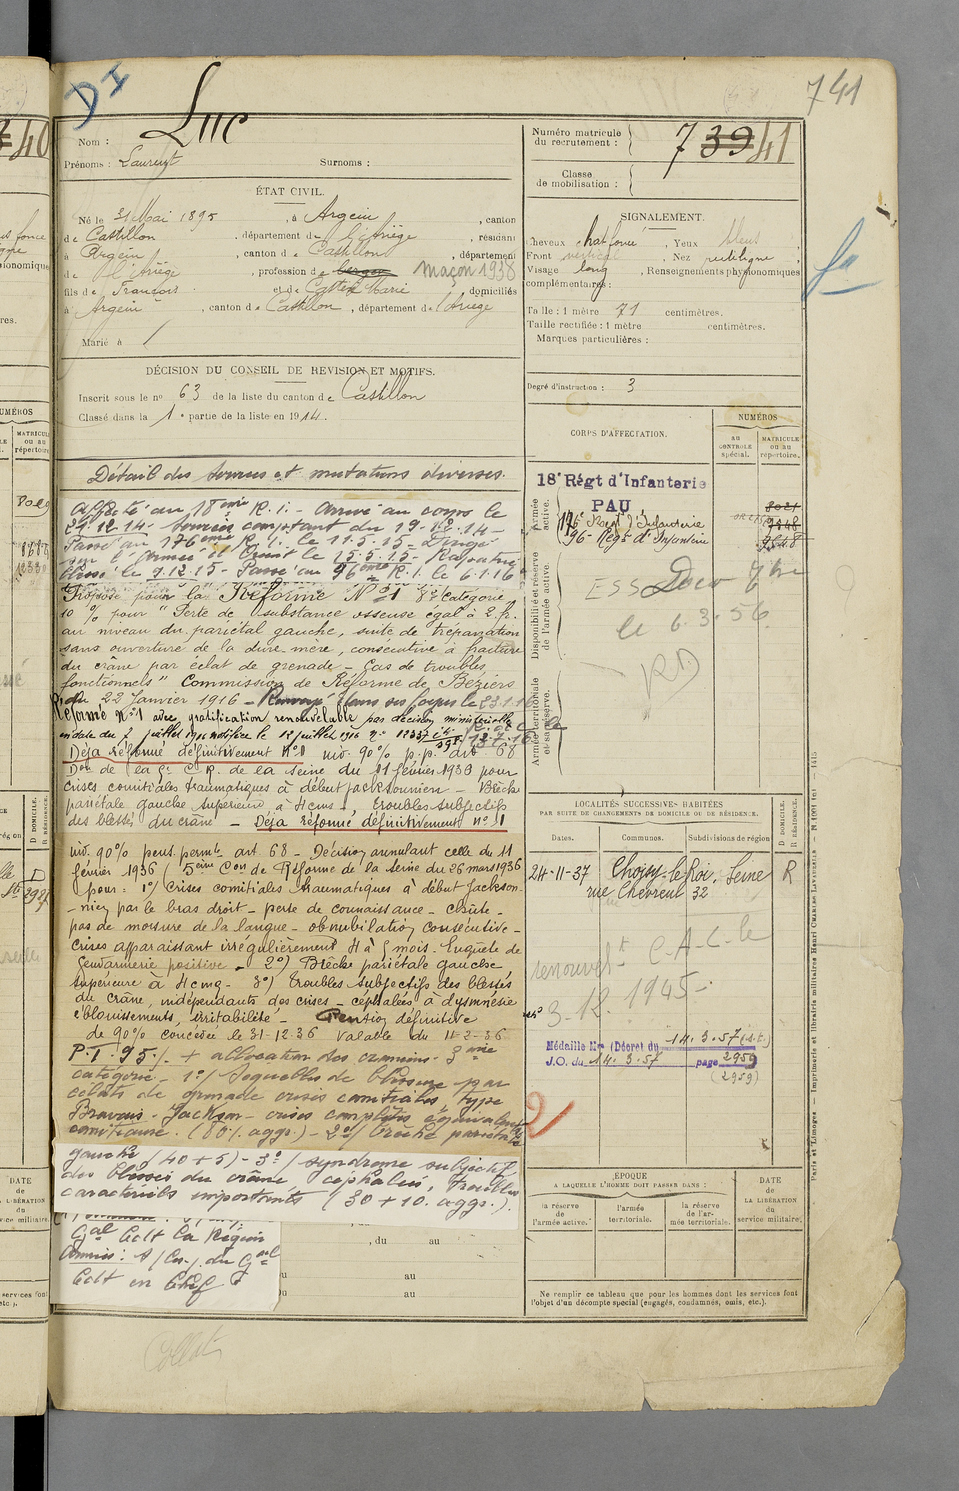 DI
741
Nom : Luc
Prénoms : Laurent Surnoms :
Numéro matricule
du recrutement : 7 39 41
Classe
de mobilisation :
ÉTAT CIVIL.
Né le 31 Mai 1895, à Argein, canton
de Castillon, département de l'Ariège, résidant
à Argein, canton de Castillon, département
de l'Ariège, profession de berger maçon 1938
fils de François et de Marie, domiciliés
à Argein, canton de Castillon, département de l'Ariège
Marié à
SIGNALEMENT.
Cheveux chat foncé, Yeux bleus
Front vertical, Nez rectiligne
Visage long, Renseignements physionomiques
complémentaires :
Taille : 1 mètre 71 centimètres.
Taille rectifiée : 1 mètre centimètres.
Marques particulières :
DÉCISION DU CONSEIL DE REVISION ET MOTIFS.
Inscrit sous le no 63 de la liste du canton de Castillon
Classé dans la 1e partie de la liste en 1914.
Degré d'instruction : 3
Détail des services et mutations diverses.
Affecté au 18eme R.i. - Arrivé au corps le
19-12-14
Passé au 176eme R.I. le 11.5.15 - Dirigé
sur l'Armée d'Orient le 15.5.15 -
Blessé le 9.12.15 - Passé au 96eme R.I. le 6.1.16
Proposé pour la "Réforme No 1 8e Catégorie
10 % pour "Perte de substance osseuse égal à 2 f.
au niveau du pariétal gauche, suite de trépanation
sans ouverture de la dure-mère, consécutive à fracture
du crâne par éclat de grenade - Pas de troubles
fonctionnels" Commission de Réforme de Béziers
du 22 Janvier 1916 - Renvoyé dans ses foyers le 23.1.16
Réformé No 1 avec gratification renouvelable par décision ministérielle
en date du 7 juillet 1916 notifiée le 12 juillet 1916 No 12337
Déjà réformé définitivement No 1 inv. 90% p.p. art 68
Don de la Se C.R. de la Seine du 11 février 1936 pour
crises comitiales traumatiques à début jacksonien - Brèche
pariétale gauche supérieure à 4cmq, troubles subjectifs
des blessés du crâne - Déjà réformé définitivement No 1
inv. 90% pens. permte art 68 - Décision annulant celle du 11
février 1936 (5eme Con de Réforme de la Seine du 26 mars 1936
pour : 1o/ Crises comitiales traumatiques à début Jackson-
-nien par le bras droit - perte de connaissance - chute -
pas de morsure de la langue - obnubilation consécutive -
crises apparaissant irrégulièrement 4 à 5 mois - Enquête de
Gendarmerie positive - 2o) Brèche pariétale gauche
supérieure à 4cmq - 3o) troubles subjectifs des blessés
du crâne, indépendants des crises - céphalées à dysmnésie
éblouissements, irritabilité - Pension définitive
de 90% concédée le 31-12-36 valable du 11-2-36
P.T. 95% + allocation des 3eme
catégorie - 1o/ Séquelles de blessure par
éclats de grenade crises comitiales, type
Bravais-Jackson - crises complètes équivalents
comitiaux. (80% aggr.) - 2o/ brèche pariétale
gauche (40 + 5) - 3o/ syndrome subjectif
des blessés du crâne, céphalées, troubles
caractériels importants (30 + 10. aggr.).
Gal Cdt la Région
du Gal
Cdt en Chef
, du au
au
au
CORPS D'AFFECTATION.
NUMÉROS
AU CONTRÔLE spécial.
MATRICULE ou au répertoire.
Armée active.
18e Régt d'Infanterie
PAU
176e Régt d'Infanterie
96e Régt d'Infanterie
Disponibilité et réserve
de l'armée active.
ESS
le 6.3.56
RD
Armée territoriale
et sa réserve.
LOCALITÉS SUCCESSIVES HABITÉES
PAR SUITE DE CHANGEMENTS DE DOMICILE OU DE RÉSIDENCE.
Dates. Communes. Subdivisions de région
D DOMICILE.
R RÉSIDENCE.
24-11-37 Choisy-le-Roi, Seine R
rue Chevreul 32
3-12.1945
Médaille Mre (Décret du 14.3.57
J.O. du 14.3.57 page 2959
(2959)
2
ÉPOQUE
A LAQUELLE L'HOMME DOIT PASSER DANS :
la réserve de l'armée active.
l'armée territoriale.
la réserve de l'armée territoriale.
DATE de LA LIBÉRATION du service militaire.
Ne remplir ce tableau que pour les hommes dont les services font
l'objet d'un décompte spécial (engagés, condamnés, omis, etc.).
Paris et Limoges. — Imprimerie et librairie militaires Henri CHARLES-LAVAUZELLE